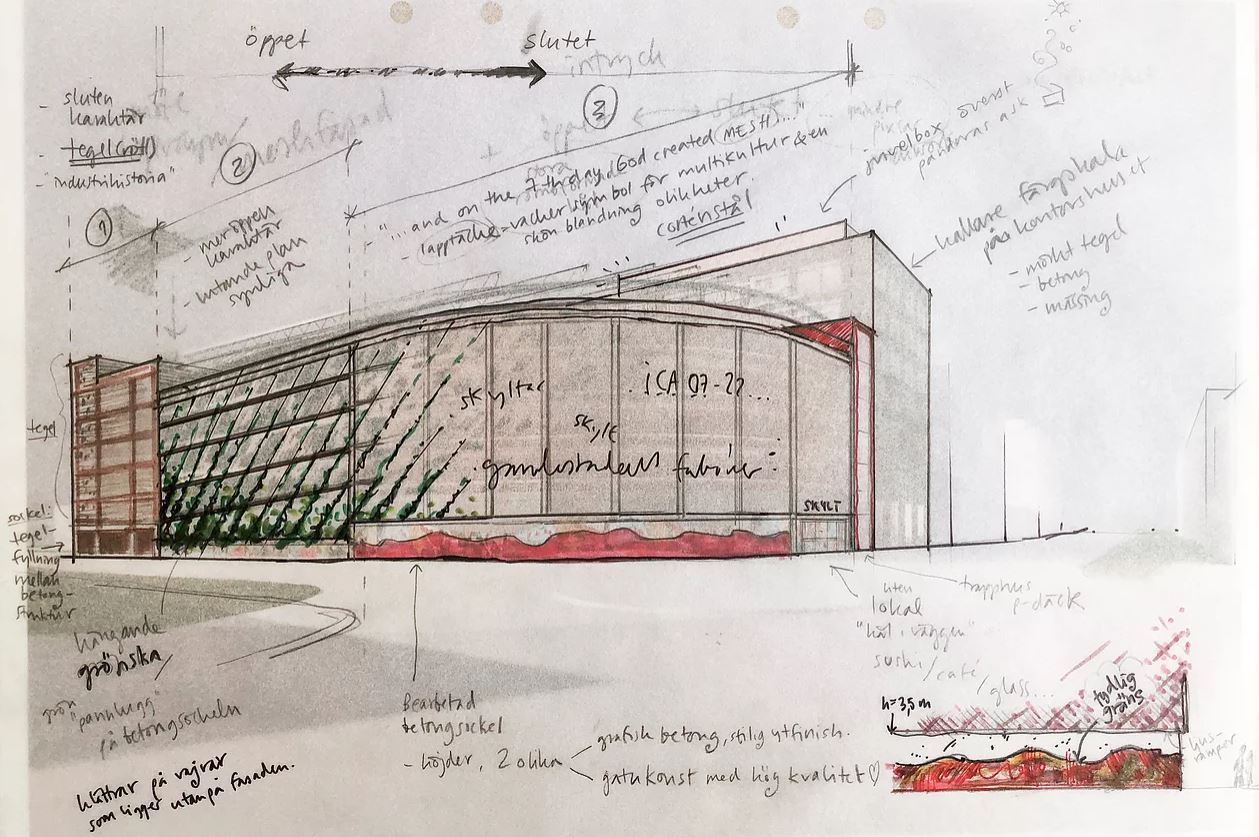 öppet
slutet
intryck
- sluten
karaktär
- tegel (rött)
- "industrihistoria"
1
2
3
- mer öppen
karaktär
- lutande plan
synliga
"...and on the 7th day, God created MESH)..."
- lapptäcke = vacker symbol för multikultur & en
skön blandning olikheter.
cortenstål
juvelbox överst
pandoras ask
kallare färgskala
på kontorshuset
- mörkt tegel
- betong
- mässing
skyltar
ICA 07-22...
skylt
SKYLT
tegel
sockel:
tegel-
fyllning
mellan
betong-
struktur
hängande
grönska
grön "pannlugg"
på betongsockeln
klättrar på vajrar
som ligger utanpå fasaden.
Bearbetad
betongsockel
- höjder, 2 olika
grafisk betong, stilig ytfinish.
gatukonst med hög kvalitet ♡
liten
lokal
"hål i väggen"
sushi/café
/glass...
trapphus
p-däck
h=3,5m
tydlig
gräns